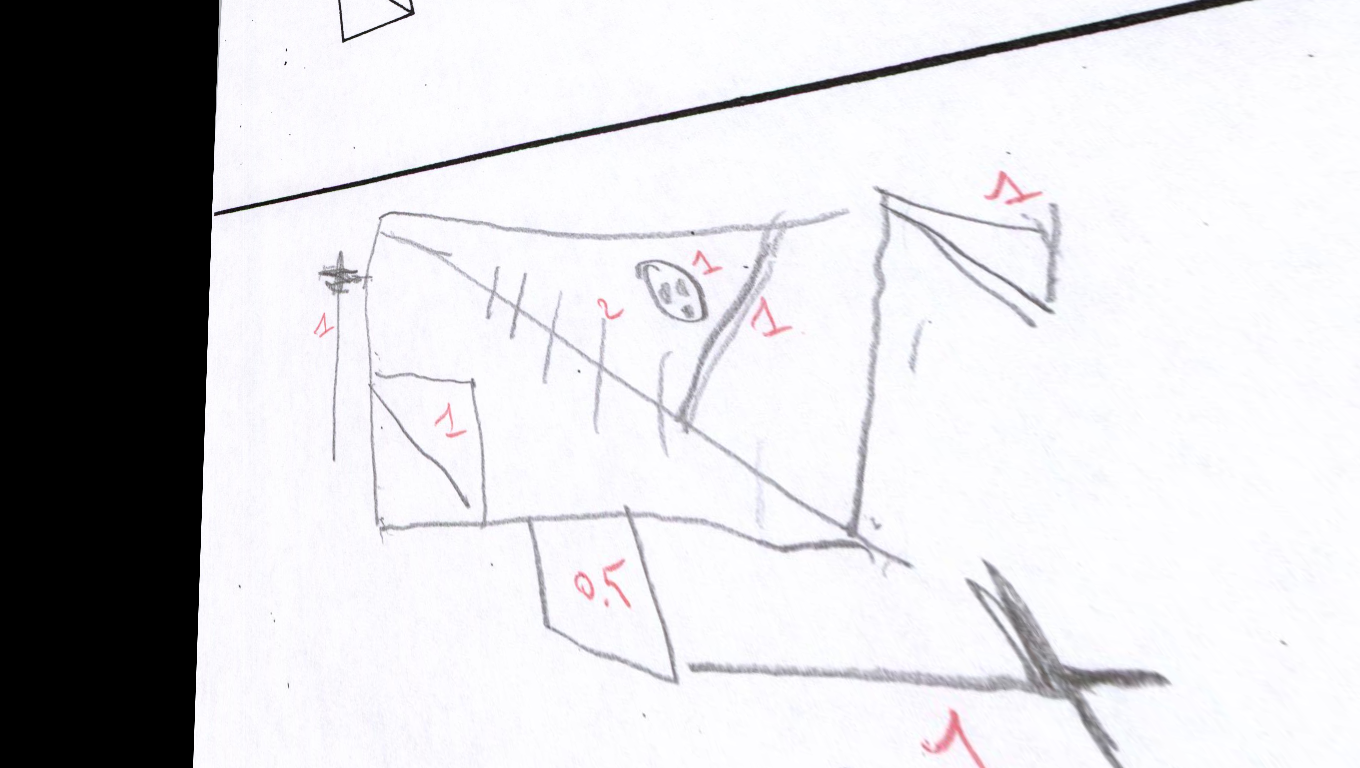 1
1
2
1
1
1
0.5
1